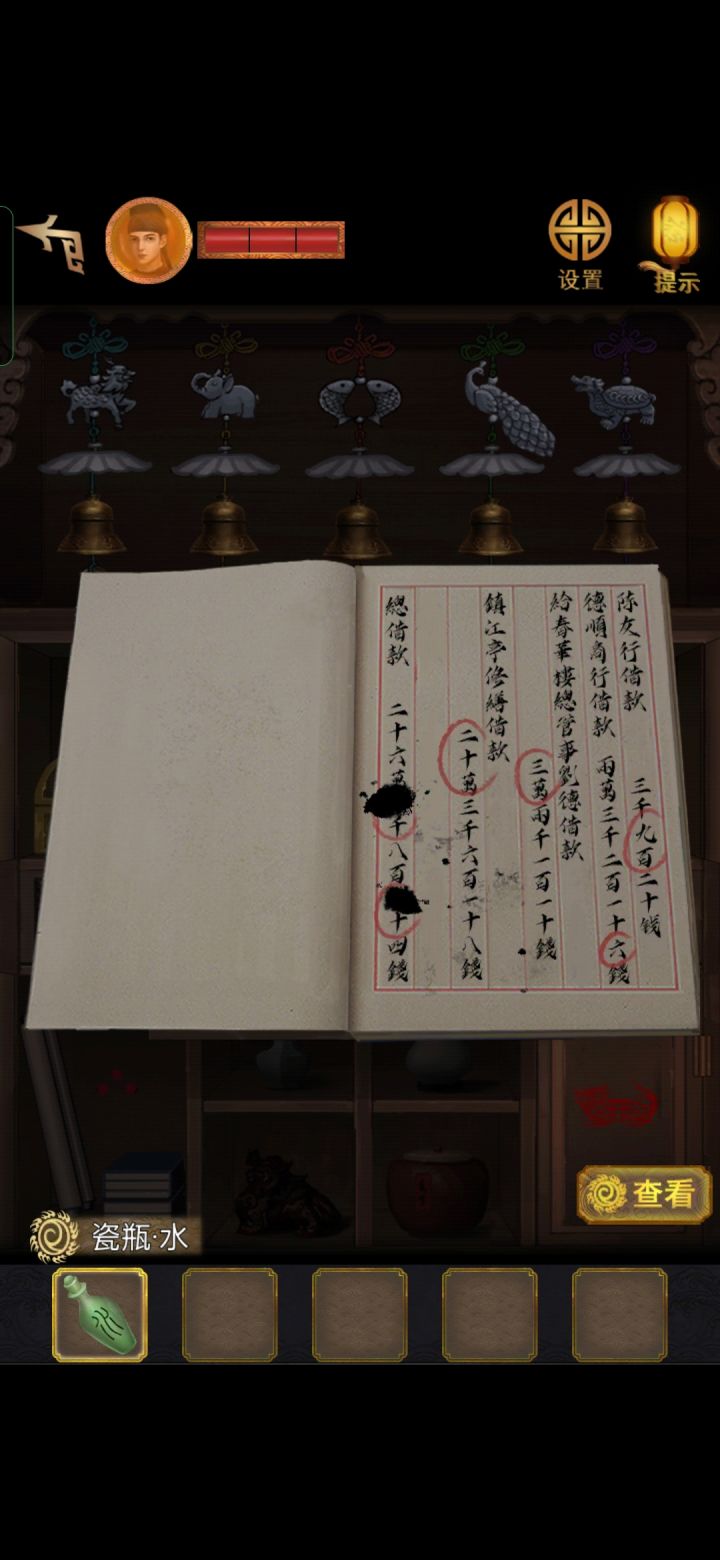 设置
提示
陈友行借款
三千九百二十钱
德順商行借款
兩萬三千二百一十六錢
給春華樓總管事劉德借款
三萬兩千一百一十錢
鎮江亭修繕借款
二十萬三千六百一十八錢
總借款
二十六萬 千八百 十四錢
查看
瓷瓶·水
水